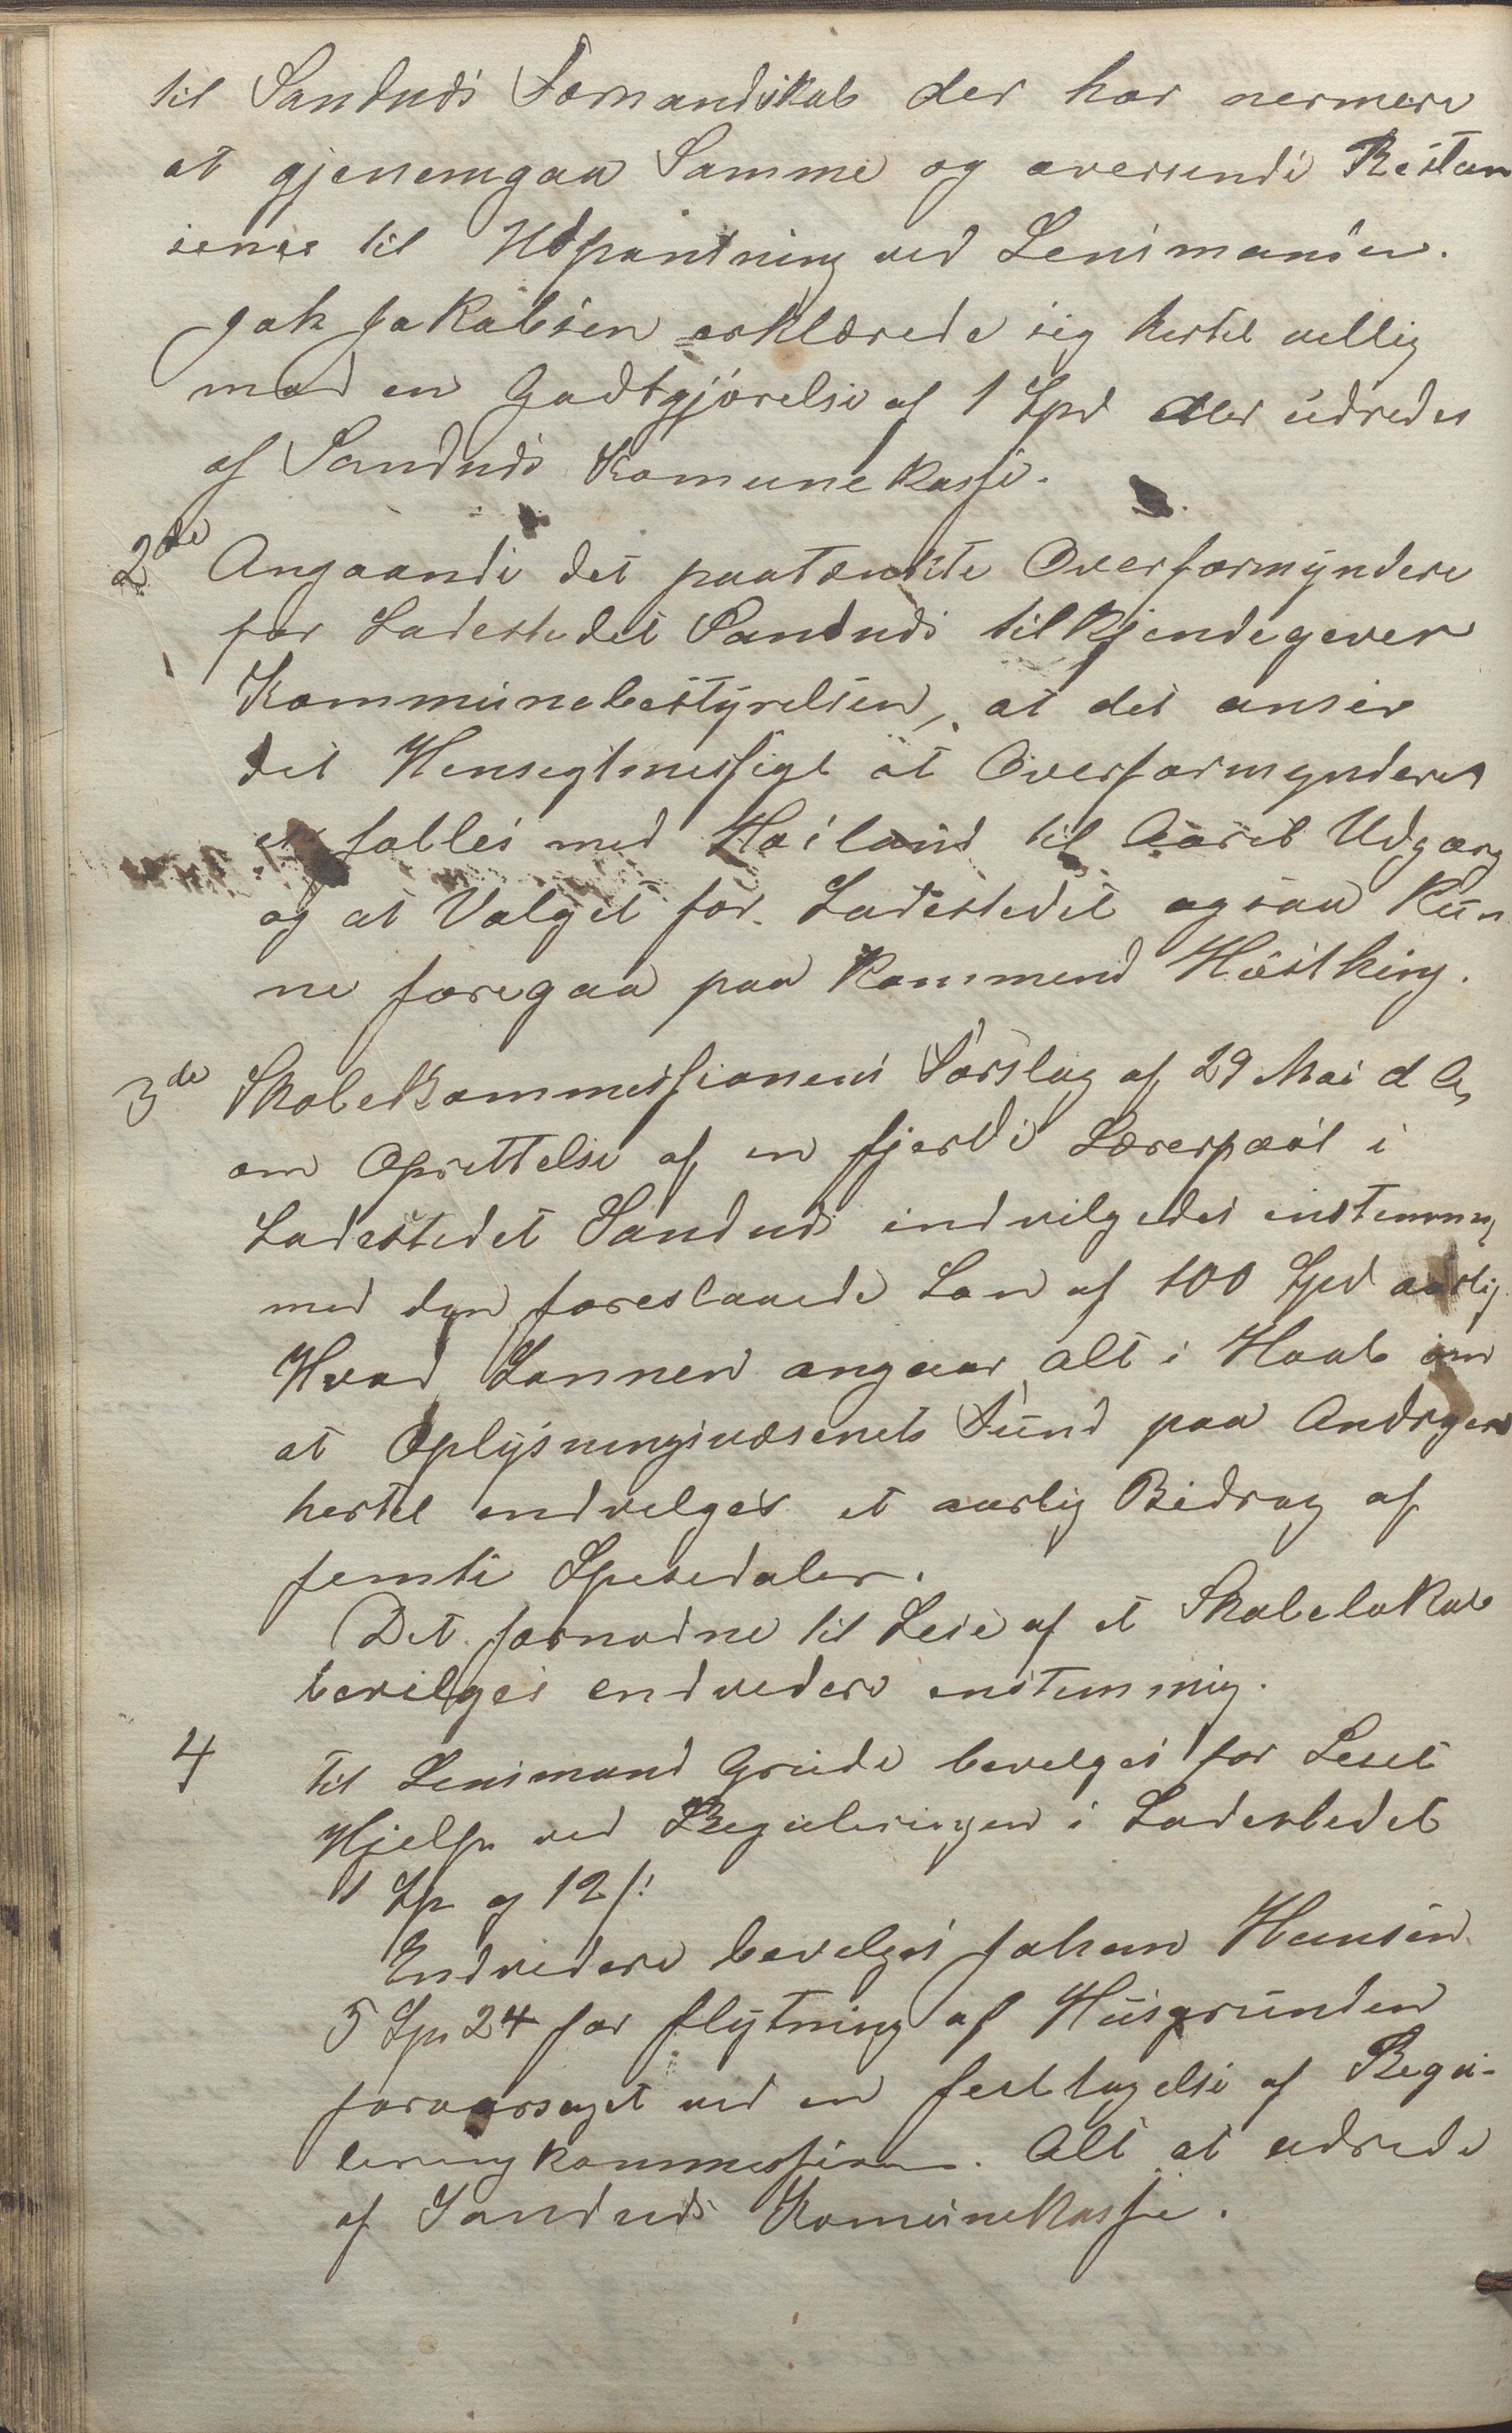 til Sandnds Formandskab der har nermere
at gjenemgaa Samme og oversende Restan
serne til Udpantning ved Lensmanden.
Joh Jakobsen erklærede sig hertil villig
mod en Godtgjørelse af 1 Spd der udredes
af Sandnds Komunekasse.
2de Angaaende det paatænkte Overformyndere
for Ladestedet Sandnds tilkjendegever
Kommunebestyrelsen, at det anser
det Hensegtmessigt at Overformynderet
er felles med Høiland til Aarets Udgang
og at Valget for Ladestedet ogsaa kun
ne foregaa paa kommend Høstthing.
3de Skolekommissionens Forslag af 29 Mai d A,
om Oprettelse af en fjerde Lærerpost i
Ladestedet Sandnds indvilgedes enstemmig
med den foreslaaede Løn af 100 Spd aarlig
Hvad Lønnen angaar, alt i Haab om
at Oplysningsvæsenets Fund paa Andragen
hertil indvilges et aarlig Bidrag af
femti Spesedaler.
Det fornødne til Leie af et Skolelokale
bevilges endvedere enstemmig.
4 Til Lensmand Grude bevelges for Leiet
Hjelp ved Reguleringen i Ladestedet
1 Sp og 12 s:
Endvedere bevelges Johan Hansen
5 Sp 24 for flytning af Husgrunden
foraarsaget ved en feiltagelse af Regu-
leringkommissionen. Alt at udrede
af Sandnds Komunekasse.